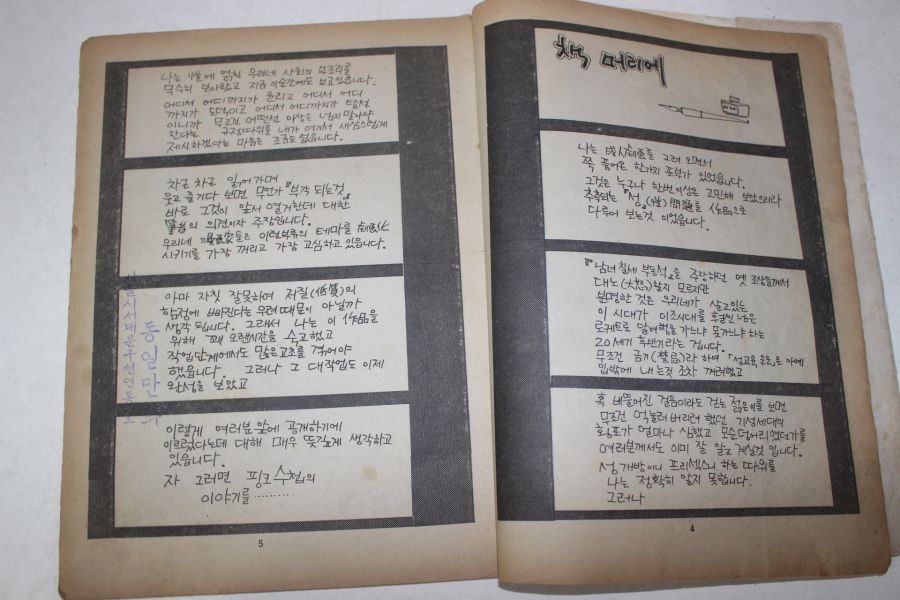 책 머리에
나는 成人劇画를 그려 오면서
쭉 품어온 한가지 포부가 있었읍니다.
그것은 누구나 한번 이상은 고민해 보았으리라
추측되는 『성』(性)問題를 作品으로
다루어 보는것 이었읍니다.
『남녀 칠세 부동석』을 주장하던 옛 조상들께서
대노(大怒)할지 모르지만
분명한 것은 우리네가 살고있는
이 시대가 이조시대를 훨씬 넘은
로케트로 달여행을 가느냐 못가느냐 하는
20세기 후반기라는 겁니다.
무조건 금기(禁忌)라 하여 『성교육 운운』은 아예
입밖에 내는것 조차 꺼려했고
혹 비뚤어진 걸음이라도 걷는 젊은이를 보면
무조건 억눌러 버리려 했던 기성세대의
횡포가 얼마나 심했고 모순덩어리였던가를
여러분께서도 이미 잘 알고 계실것 입니다.
성개방이니 프리섹스니 하는 따위를
나는 정확히 알지 못합니다.
그러나
4
나는 性에 얽힌 우리네 사회의 부조리를
무수히 보아왔고 지금 이순간에도 보고 있읍니다.
어디서 어디까지가 윤리고 어디서 어디
까지가 도덕이고 어디서 어디까지가 탈선
이니까 무조건 어떤선 이상은 넘지 말아야
한다는 규정따위를 내가 여기서 새삼스럽게
제시하겠다는 마음은 조금도 없읍니다.
차근 차근 읽어가며
웃고 즐기다 보면 무언가 『생각 되는것』
바로 그것이 앞서 열거한데 대한
筆者의 의견이자 주장입니다.
우리네 들은 이런부류의 테마를 劇画化
시키기를 가장 꺼리고 가장 고심하고 있읍니다.
아마 자칫 잘못하여 저질(低質)의
함정에 빠진다는 우려 때문이 아닐까
생각 됩니다. 그래서 나는 이 作品을
위해 꽤 오랜시간을 수고했고
작업단계에서도 많은고초를 겪어야
했읍니다. 그러나 그 대작업도 이제
완성을 보았고
이렇게 여러분 앞에 공개하기에
이르렀다는데 대해 매우 뜻깊게 생각하고
있읍니다.
자 그러면 핑크 수첩의
이야기를………
5